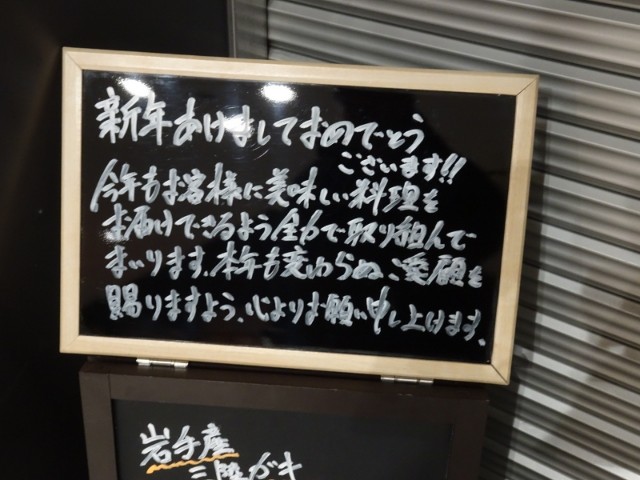 新年あけましておめでとう
ございます!!
今年もお客様に美味しい料理を
お届けできるよう全力で取り組んで
まいります。本年も変わらぬご愛顧を
賜りますよう、心よりお願い申し上げます。
岩手産
三陸ガキ